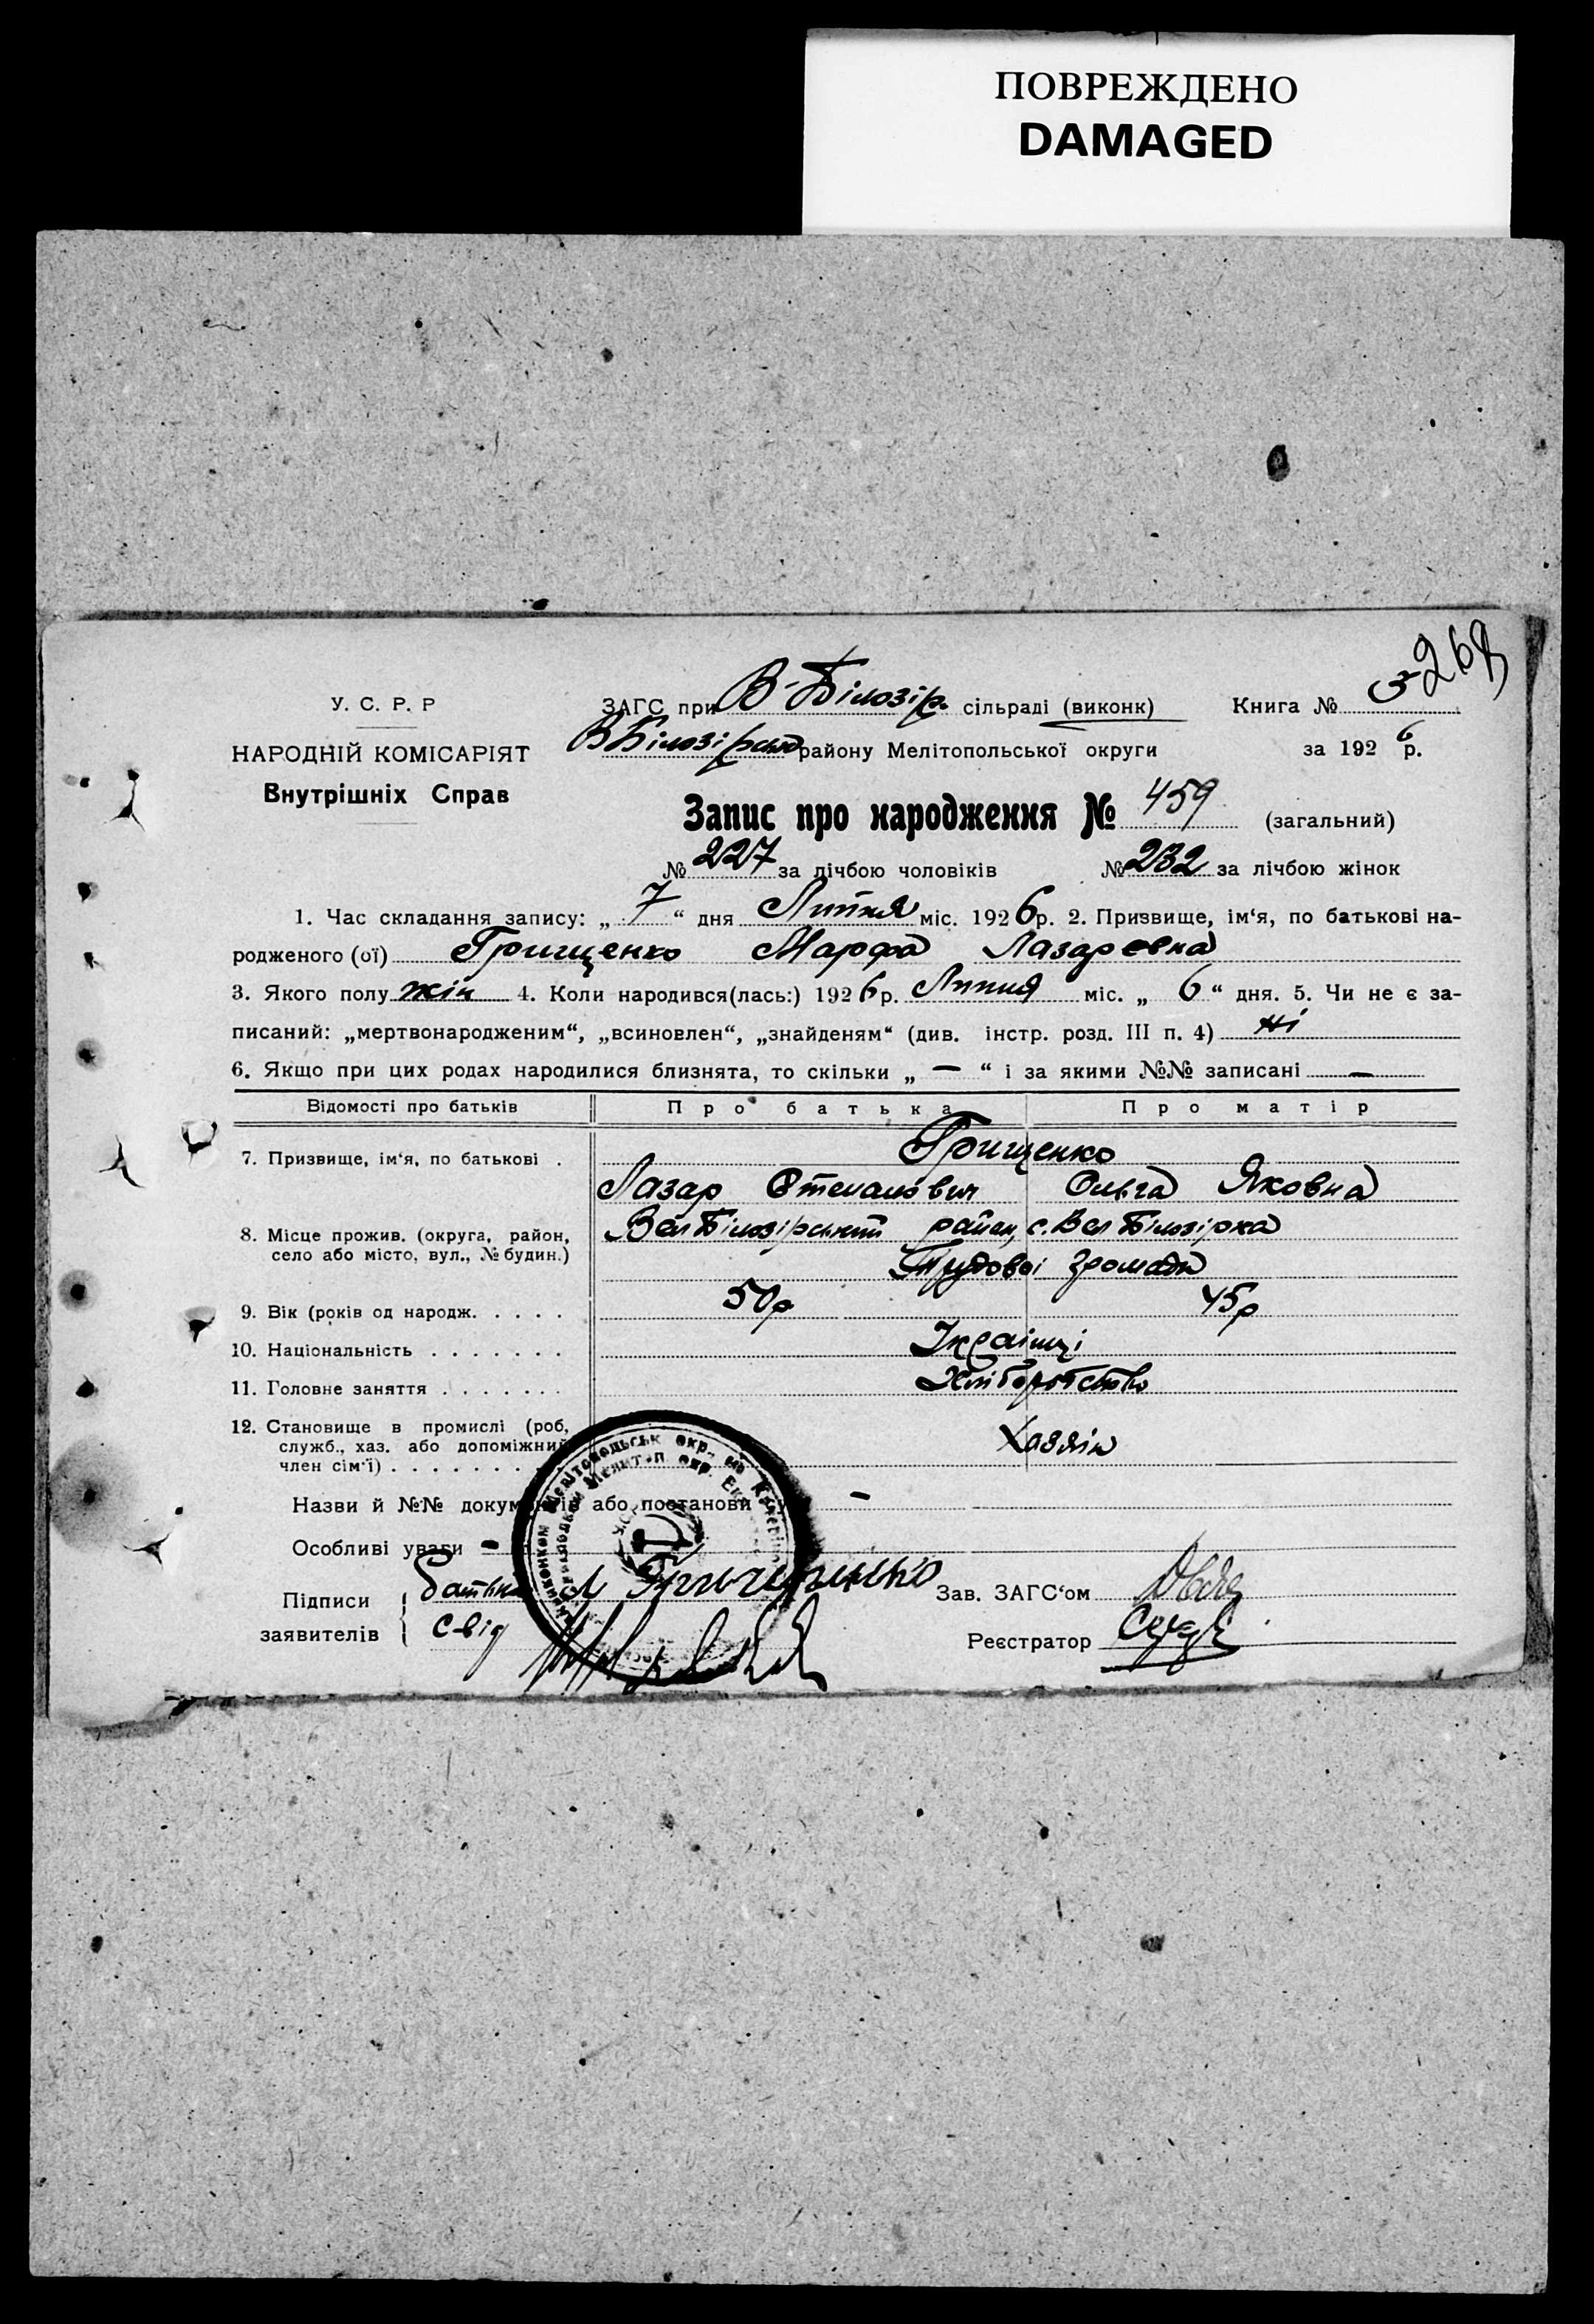 ПОВРЕЖДЕНО
DAMAGED
268
У. С. Р. Р
ЗАГС при В-Білозір. сільраді (виконк)
Книга № 3
НАРОДНІЙ КОМІСАРІЯТ
В Білозірськ району Мелітопольської округи
за 1926 р.
Внутрішніх Справ
Запис про народження № 459 (загальний)
№ 227 за лічбою чоловіків № 232 за лічбою жінок
1. Час складання запису: „ 7 “ дня Липня міс. 1926 р. 2. Призвище, ім‘я, по батькові на-
родженого (ої) Грищенко Марфа Лазаревна
3. Якого полу жін 4. Коли народився(лась:) 1926 р. Липня міс. „ 6 “ дня. 5. Чи не є за-
писаний: „мертвонародженим“, „всиновлен“, „знайденям“ (див. інстр. розд. III п. 4) ні
6. Якщо при цих родах народилися близнята, то скільки „ — “ і за якими №№ записані —
Відомості про батьків Про батька Про матір
7. Призвище, ім‘я, по батькові . Грищенко
Лазар Степанович Ольга Яковна
8. Місце прожив. (округа, район,
село або місто, вул., № будин.)
Вел Білозірський район, с. Вел Білозірка
Трудової громади
9. Вік (років од народж. . . . . 50р 45р
10. Національність . . . . . . . Українці
11. Головне заняття . . . . . . . Хліборобство
12. Становище в промислі (роб,
служб., хаз. або допоміжний
член сім‘ї) . . . . . . .
Хазяїн
Назви й №№ документів або постанови —
Особливі уваги —
Підписи
заявителів
батька Л Грищенко
Свід
Зав. ЗАГС‘ом
Реєстратор